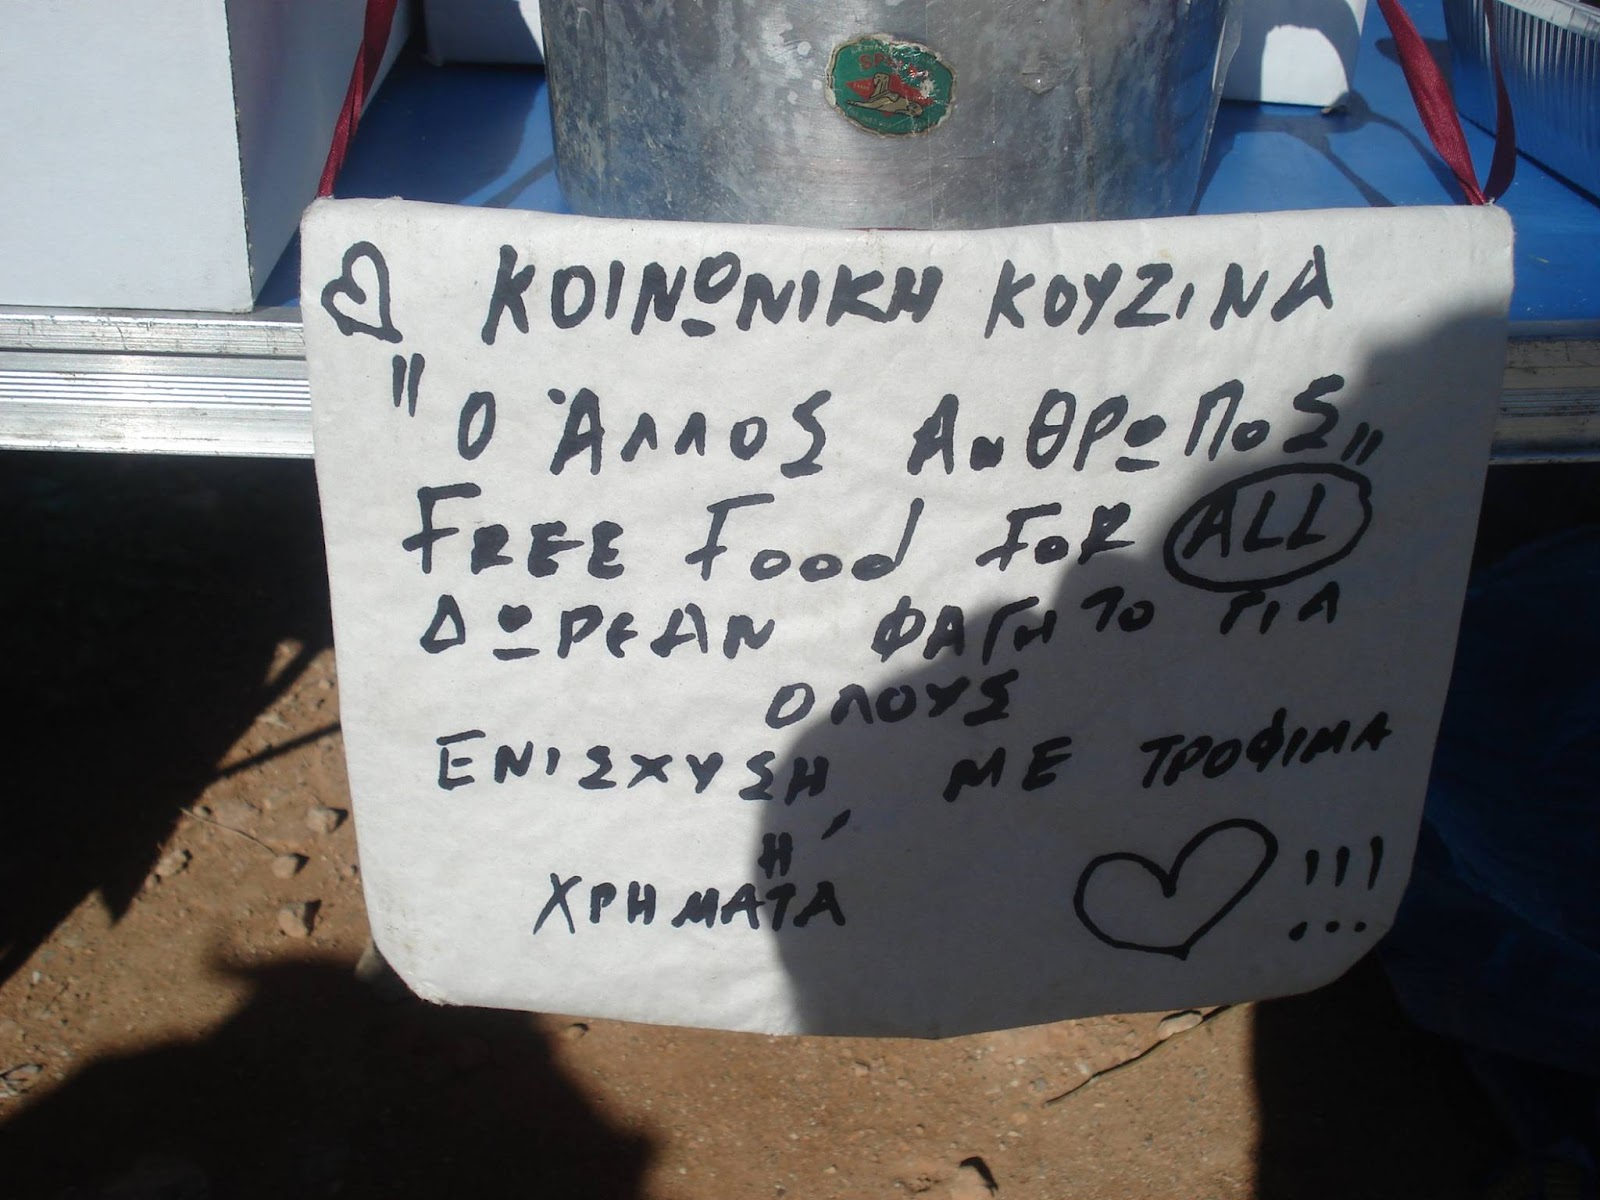 ΚΟΙΝΩΝΙΚΗ ΚΟΥΖΙΝΑ
"Ο ΆΛΛΟΣ ΑΝΘΡΩΠΟΣ"
FREE Food FOR ALL
ΔΩΡΕΑΝ ΦΑΓΗΤΟ ΓΙΑ
ΟΛΟΥΣ
ΕΝΙΣΧΥΣΗ ΜΕ ΤΡΟΦΙΜΑ
Ή
ΧΡΗΜΑΤΑ !!!...